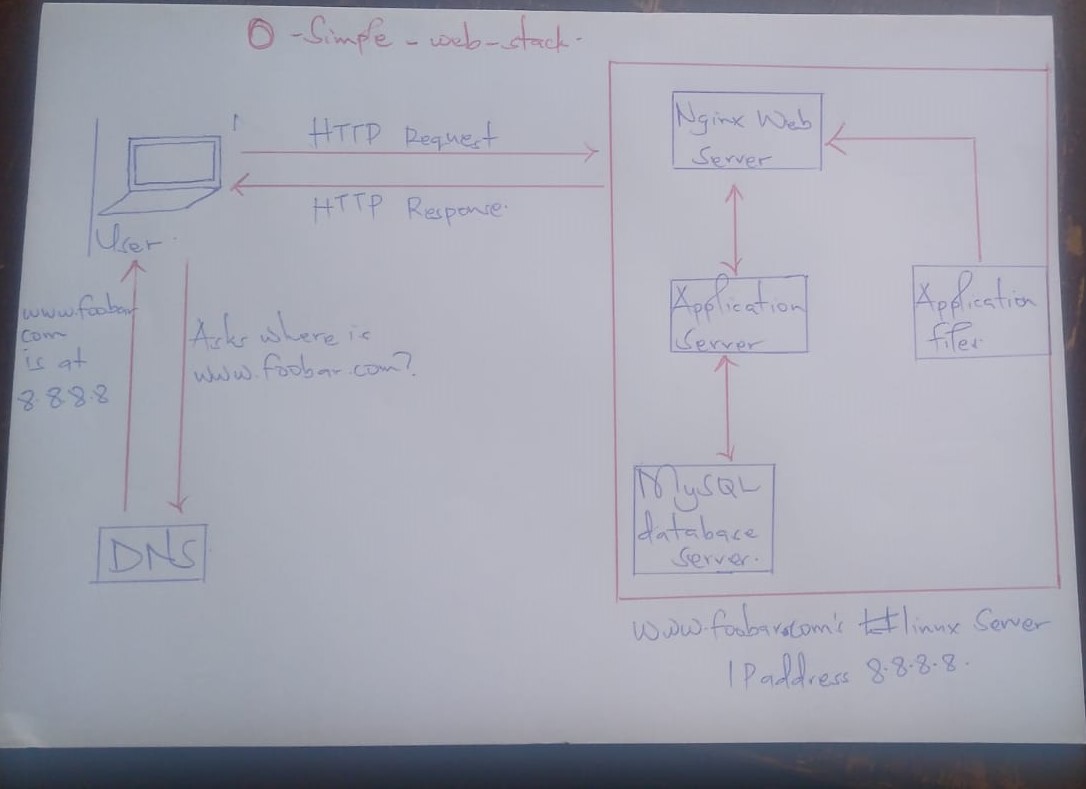 0-Simple-web-stack.
HTTP Request
HTTP Response.
User.
www.foobar
com
is at
8.8.8.8
Asks where is
www.foobar.com?
DNS
Nginx Web
Server
Application
Server
Application
files
MySQL
database
Server.
www.foobar.com's linux Server
IPaddress 8.8.8.8.